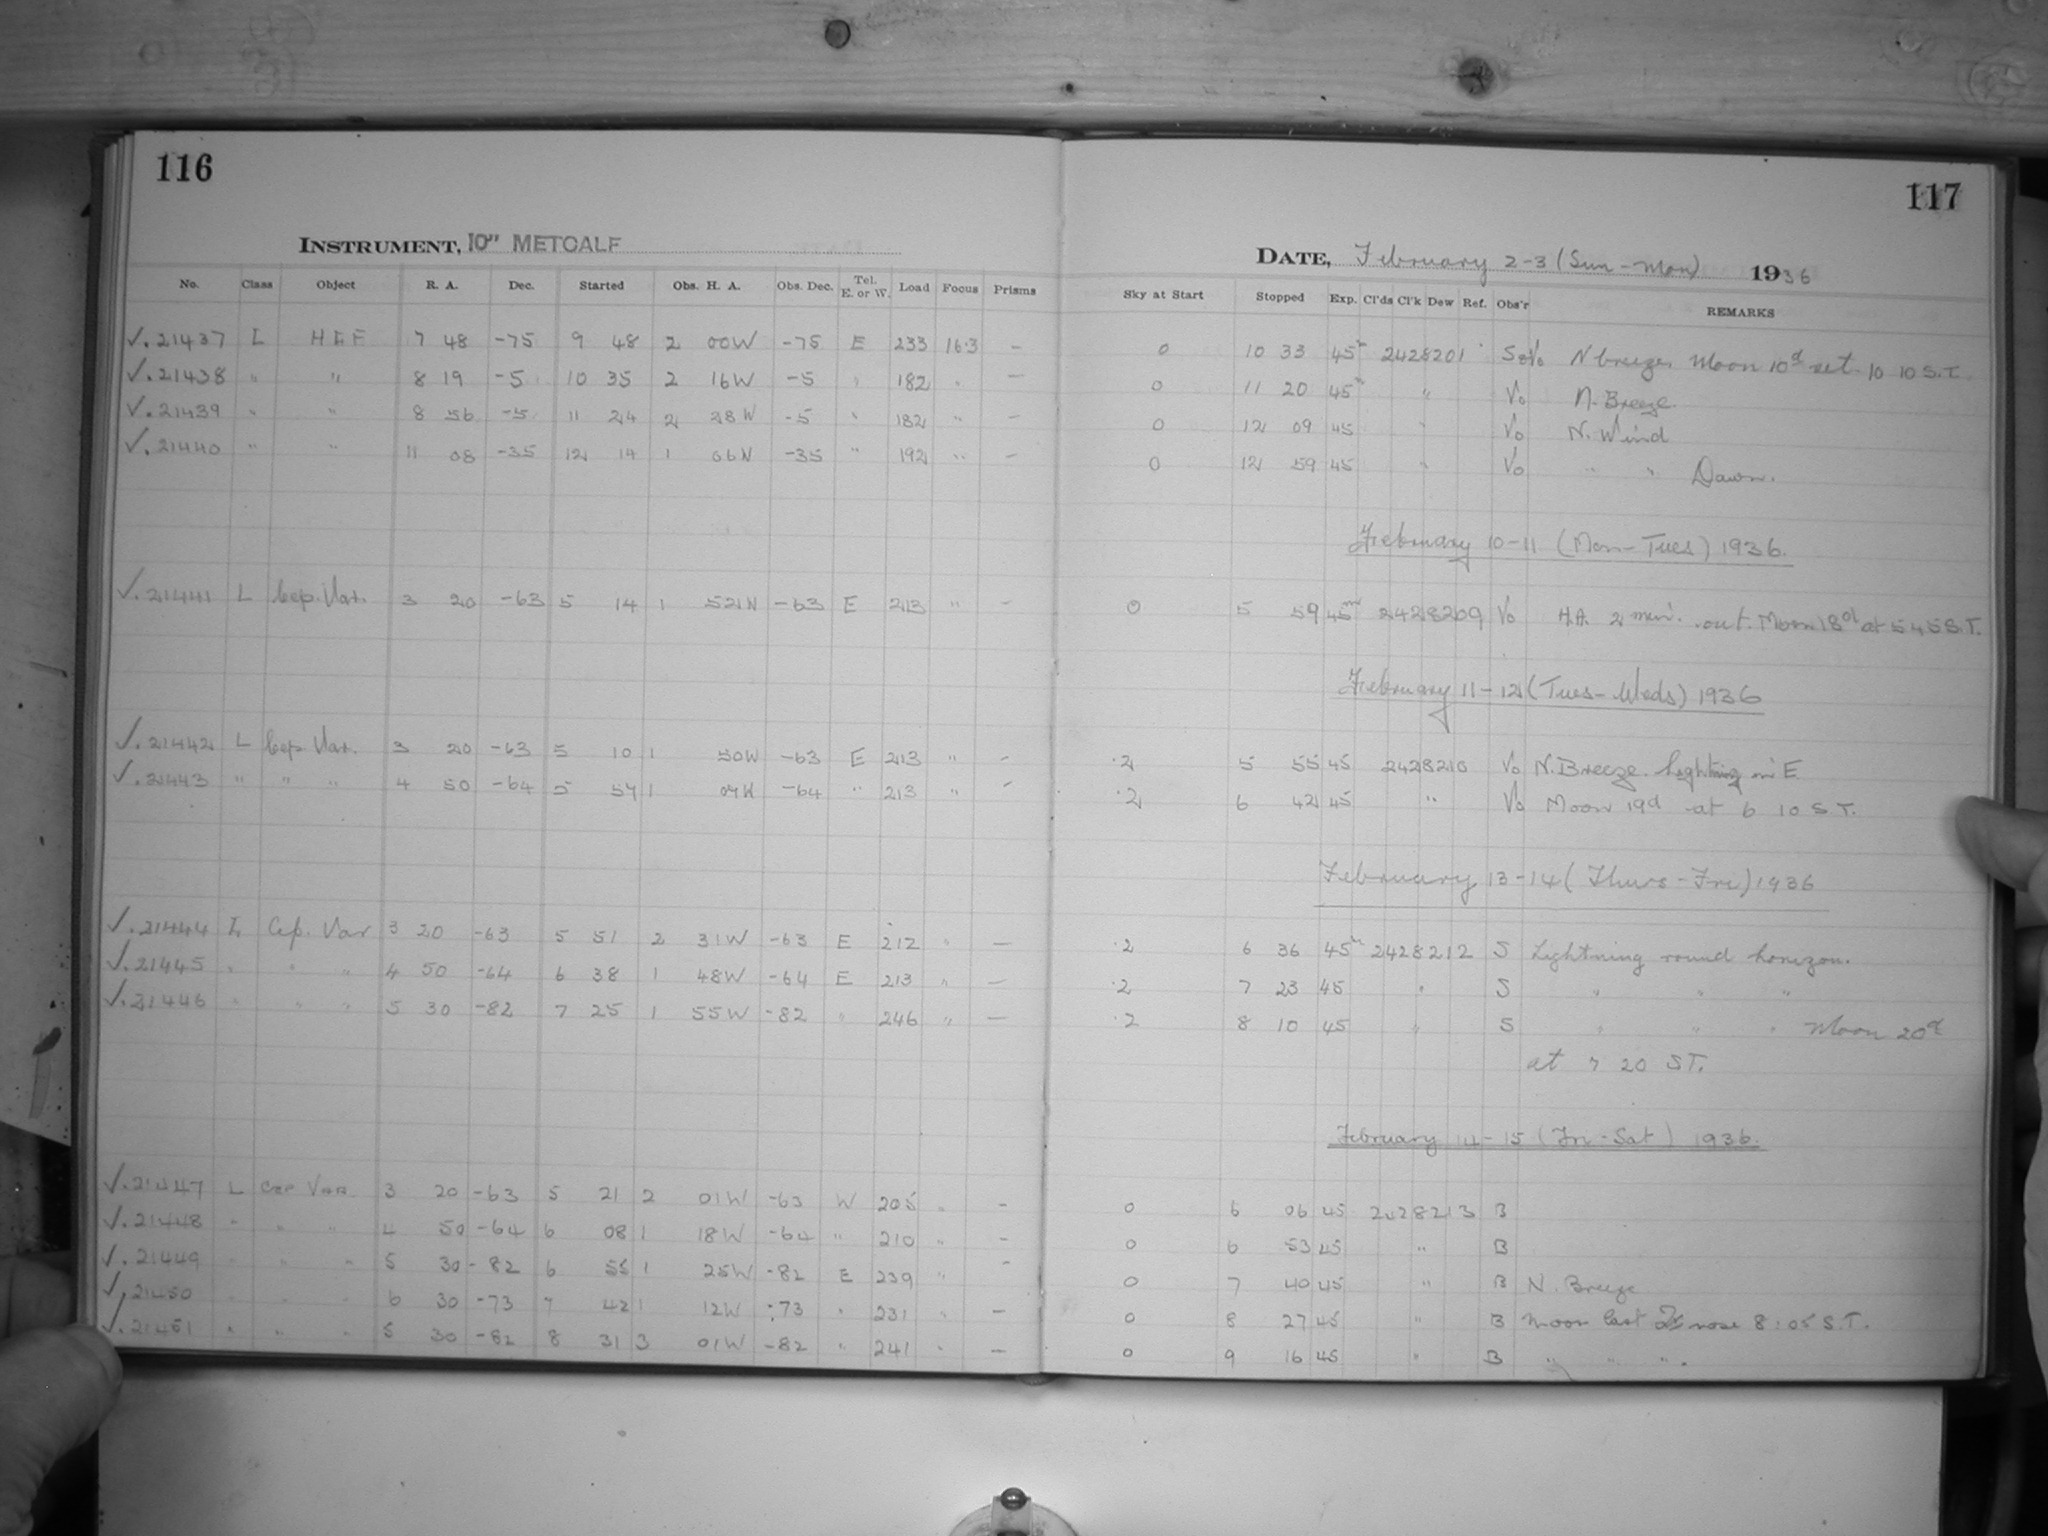 116
117
INSTRUMENT, 10" METCALF
DATE, February 2-3 (Sun-Mon) 1936
No. Class Object R. A. Dec. Started Obs. H. A. Obs. Dec. Tel. E. or W. Load Focus Prisms Sky at Start Stopped Exp. Cl'ds Cl'k Dew Ref. Obs'r REMARKS
√. 21437 L 7 48 -75 9 48 2 00W -75 E 233 16.3 — 0 10 33 45m 2428201 N breeze, Moon 10d set 10 10 S.T.
√. 21438 " " 8 19 -5 10 35 2 16W -5 " 182 " — 0 11 20 45m " Vo N. Breeze
√. 21439 " " 8 56 -5 11 24 2 28W -5 " 182 " — 0 12 09 45 " Vo N. Wind
√. 21440 " " 11 08 -35 12 14 1 06W -35 " 192 " — 0 12 59 45 " Vo " " Dawn.
February 10-11 (Mon-Tues) 1936.
√. 21441 L Cep. Var. 3 20 -63 5 14 1 52W -63 E 213 " — 0 5 59 45m 2428209 Vo H.A. 2 min. out. Moon 18d at 5 45 S.T.
February 11-12 (Tues-Weds) 1936
√. 21442 L Cep. Var. 3 20 -63 5 10 1 50W -63 E 213 " — .2 5 55 45 2428210 Vo N. Breeze. Lightning in E
√. 21443 " " " 4 50 -64 5 57 1 07W -64 " 213 " — .2 6 42 45 " Vo Moon 19d at 6 10 S.T.
February 13-14 (Thurs-Fri) 1936
√. 21444 L Cep. Var 3 20 -63 5 51 2 31W -63 E 212 " — .2 6 36 45m 2428212 S Lightning round horizon.
√. 21445 " " " 4 50 -64 6 38 1 48W -64 E 213 " — .2 7 23 45 " S " " "
√. 21446 " " " 5 30 -82 7 25 1 55W -82 " 246 " — .2 8 10 45 " S " " " Moon 20d
at 7 20 ST.
February 14-15 (Fri-Sat) 1936.
√. 21447 L Cep Var. 3 20 -63 5 21 2 01W -63 W 205 " — 0 6 06 45 2428213 B
√. 21448 " " " 4 50 -64 6 08 1 18W -64 " 210 " — 0 6 53 45 " B
√. 21449 " " " 5 30 -82 6 55 1 25W -82 E 239 " — 0 7 40 45 " B N. Breeze
√. 21450 " " " 6 30 -73 7 42 1 12W -73 " 231 " — 0 8 27 45 " B Moon last rose 8:05 S.T.
√. 21451 " " " 5 30 -82 8 31 3 01W -82 " 241 " — 0 9 16 45 " B " " ".